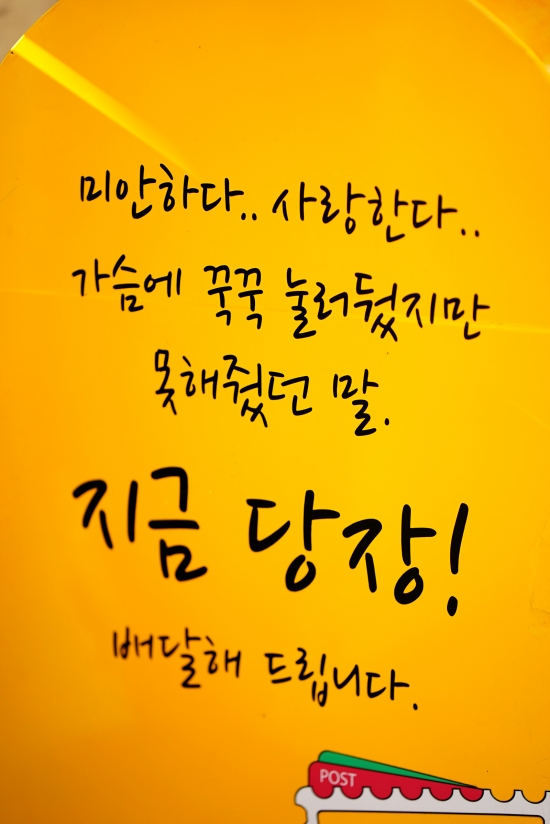 미안하다.. 사랑한다..
가슴에 꾹꾹 눌러뒀지만
못해줬던 말.
지금 당장!
배달해 드립니다.
POST